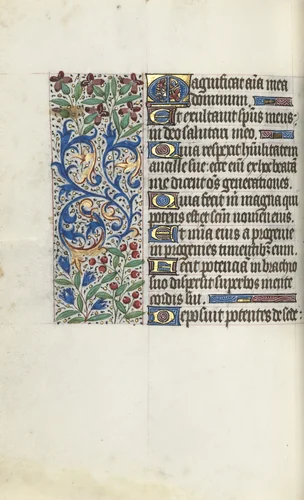 Magnificat aīa mea
dominum.
Et exultauit spūs meus:
in deo salutari meo.
Quia respexit humilitatem
ancille sue: ecce eni ex hoc beatā
me dicent oēs generationes.
Quia fecit m̄ magna qui
potens est et scm̄ nomen eius.
Et mīa eius a progenie
in progenies timentibz eum.
Fecit potenciā in brachio
suo dispersit superbos mente
cordis sui.
Deposuit potentes de sede: